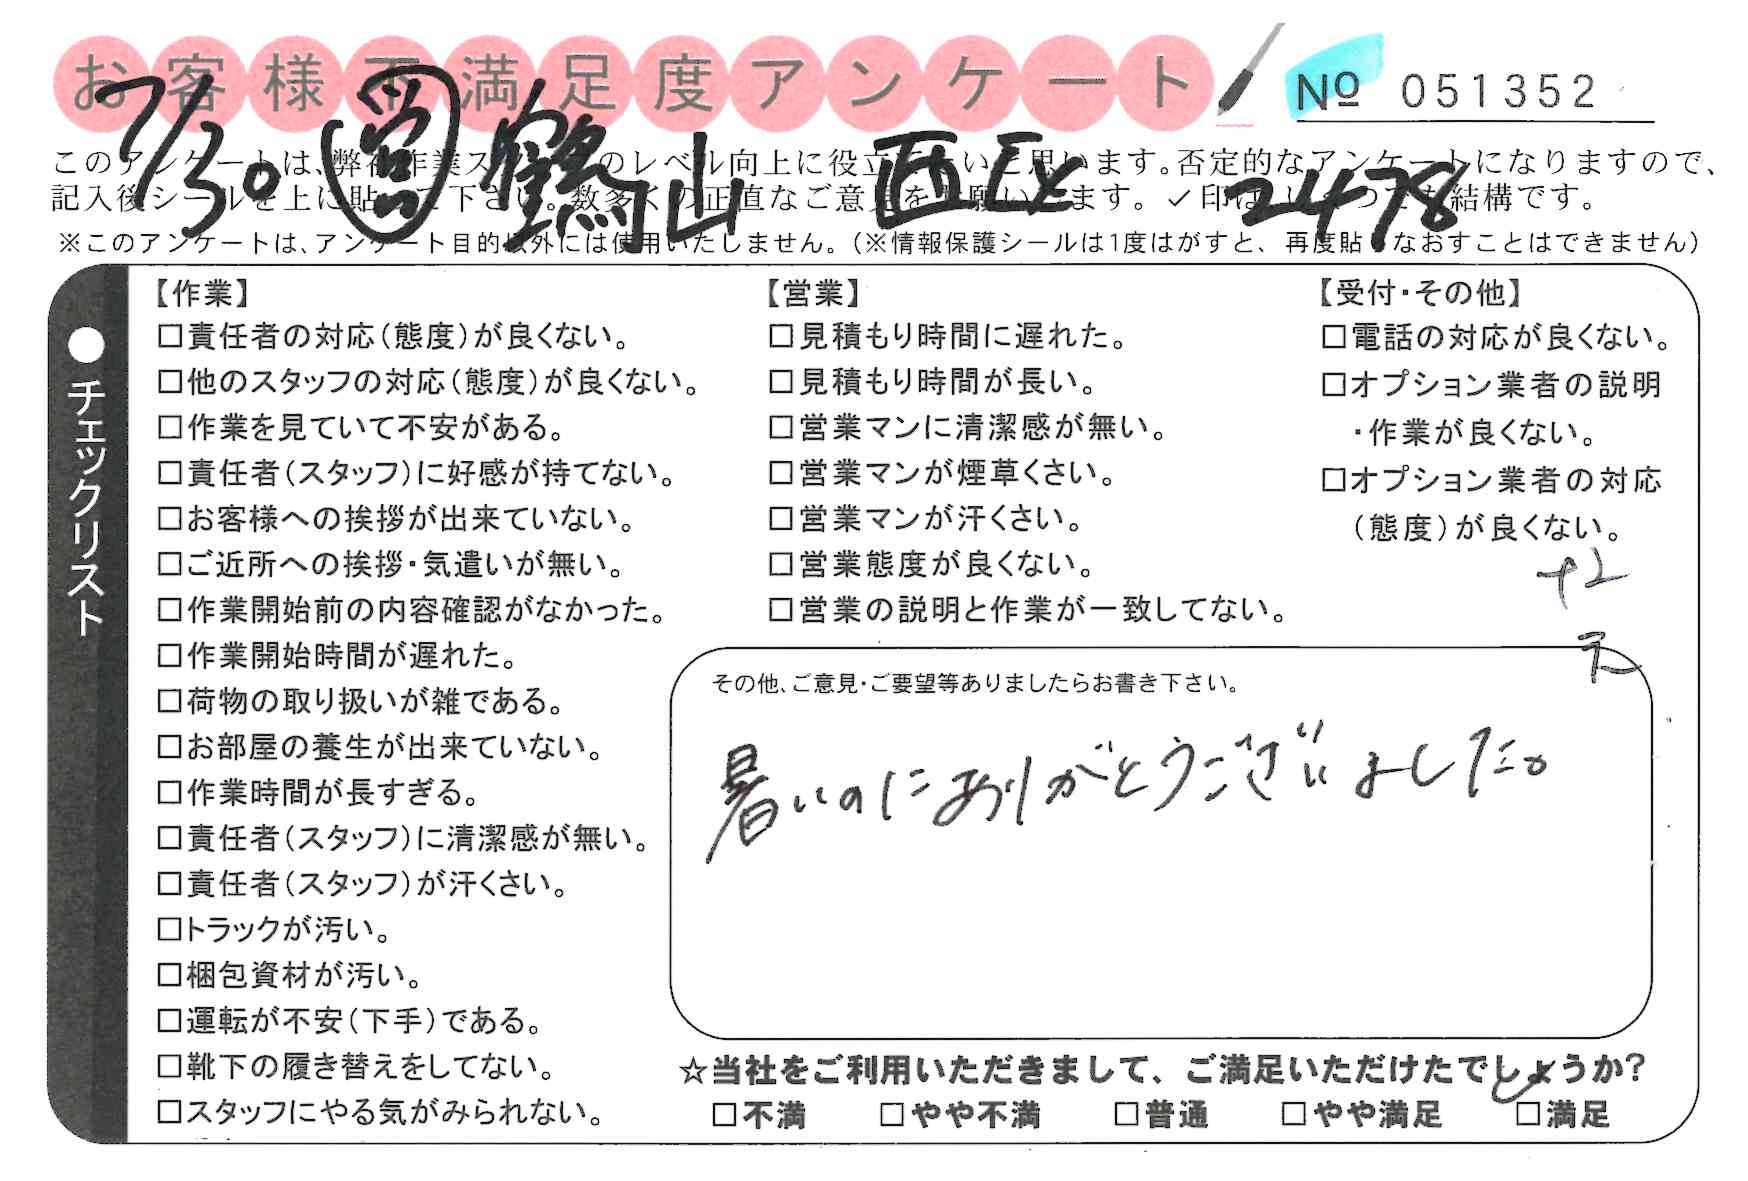 お客様不満足度アンケート
№ 051352
7/30 鶴山 2478
このアンケートは、弊社作業スタッフのレベル向上に役立てたいと思います。否定的なアンケートになりますので、
記入後シールを上に貼って下さい。数多くの正直なご意見をお願いします。✓印は いくつでも結構です。
※このアンケートは、アンケート目的以外には使用いたしません。(※情報保護シールは1度はがすと、再度貼りなおすことはできません)
●チェックリスト
【作業】
□責任者の対応(態度)が良くない。
□他のスタッフの対応(態度)が良くない。
□作業を見ていて不安がある。
□責任者(スタッフ)に好感が持てない。
□お客様への挨拶が出来ていない。
□ご近所への挨拶・気遣いが無い。
□作業開始前の内容確認がなかった。
□作業開始時間が遅れた。
□荷物の取り扱いが雑である。
□お部屋の養生が出来ていない。
□作業時間が長すぎる。
□責任者(スタッフ)に清潔感が無い。
□責任者(スタッフ)が汗くさい。
□トラックが汚い。
□梱包資材が汚い。
□運転が不安(下手)である。
□靴下の履き替えをしてない。
□スタッフにやる気がみられない。
【営業】
□見積もり時間に遅れた。
□見積もり時間が長い。
□営業マンに清潔感が無い。
□営業マンが煙草くさい。
□営業マンが汗くさい。
□営業態度が良くない。
□営業の説明と作業が一致してない。
【受付・その他】
□電話の対応が良くない。
□オプション業者の説明
・作業が良くない。
□オプション業者の対応
(態度)が良くない。
その他、ご意見・ご要望等ありましたらお書き下さい。
暑いのにありがとうございました。
☆当社をご利用いただきまして、ご満足いただけたでしょうか?
□不満 □やや不満 □普通 □やや満足 □満足